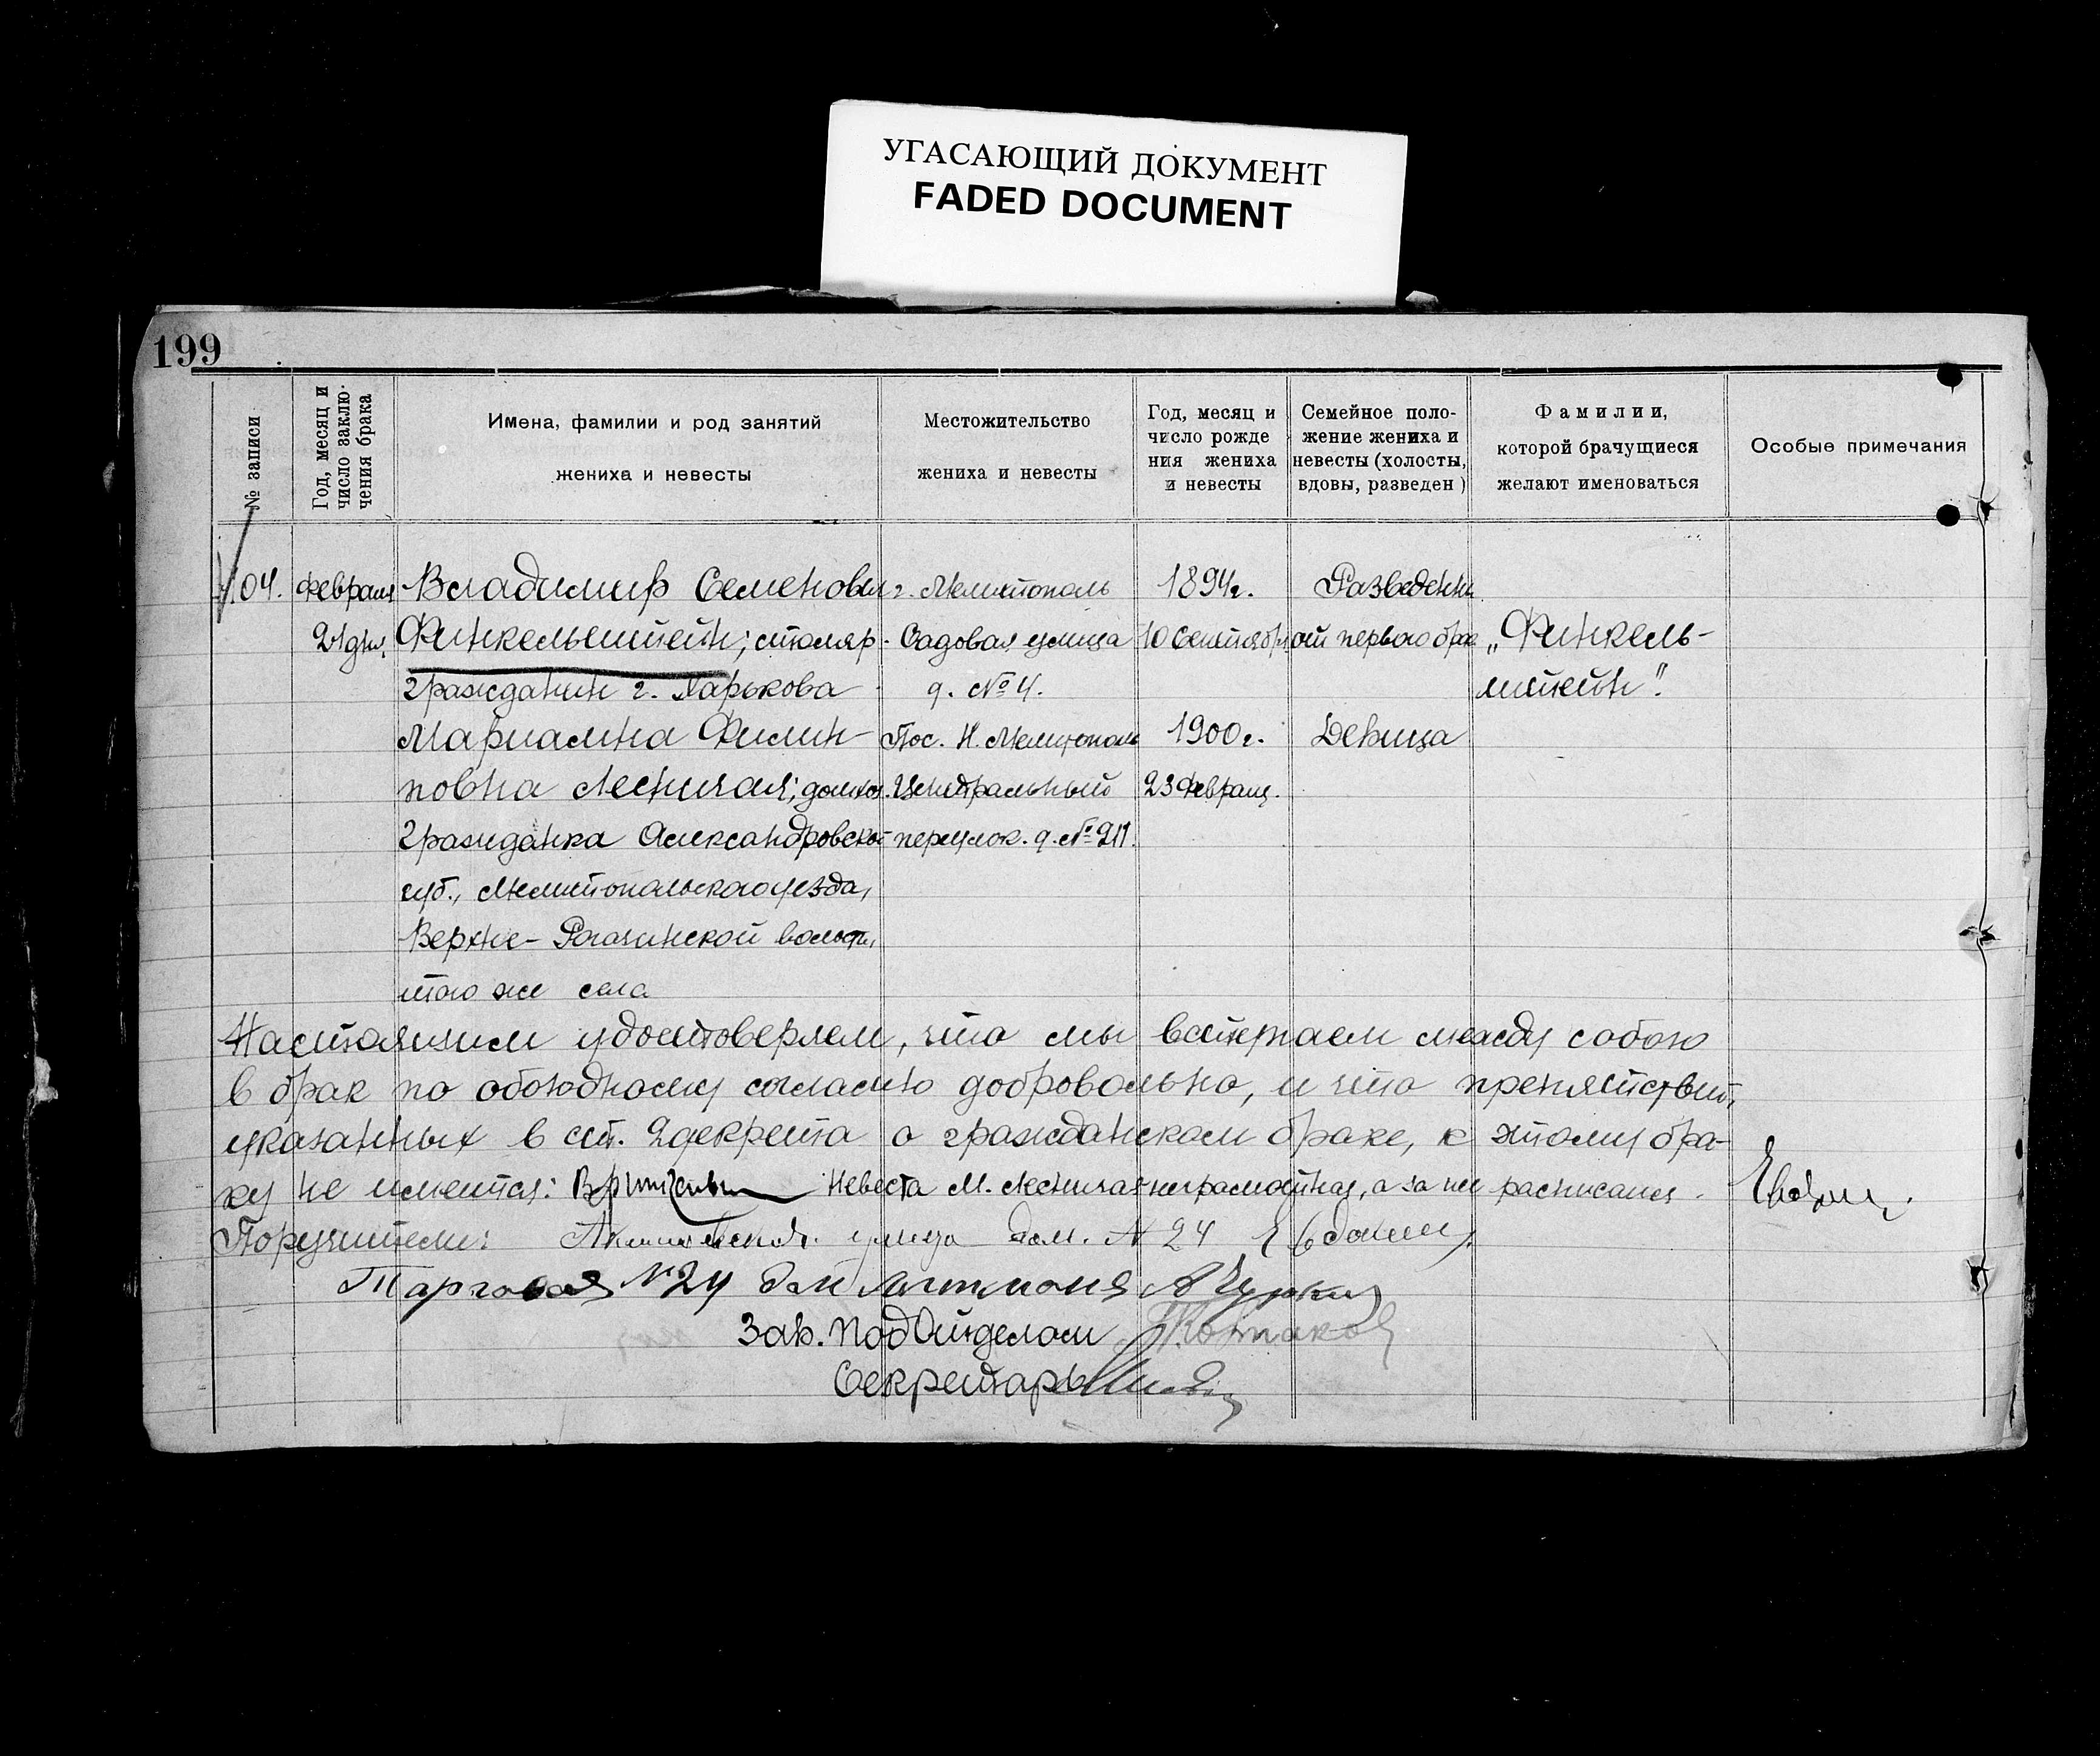 УГАСАЮЩИЙ ДОКУМЕНТ
FADED DOCUMENT
199
№ записи
Год, месяц и
число заклю-
чения брака
Имена, фамилии и род занятий
жениха и невесты
Местожительство
жениха и невесты
Год, месяц и
число рожде
ния жениха
и невесты
Семейное поло-
жение жениха и
невесты (холосты,
вдовы, разведен)
Фамилии,
которой брачущиеся
желают именоваться
Особые примечания
104.
Февраля
24 дня.
Владимир Семенович
Финкельштейн; столяр
гражданин г. Харькова
г. Мелитополь
Садовая улица
д. № 4.
1894г.
10 Сентября
Разведенн
от первого брак
„Финкель-
штейн".
Мариамна Филип-
повна Лесничая; домхоз.
гражданка Александровской
губ., Мелитопольского уезда,
Верхне-Рогачинской волости,
того же села
Пос. Н. Мелитополь
Центральный
переулок. д. № 211.
1900г.
23 Февраля.
Девица
Настоящим удостоверяем, что мы вступаем между собою
в брак по обоюдному согласию добровольно, и что препятствий,
указанных в ст. 2 декрета о гражданском браке, к этому бра-
ку не имеется: Невеста М. Лесничая неграмотная, а за нее расписался
Поручители: улица дом. № 24
Торговая № 24 дом
Зав. ПодОтделом
Секретарь